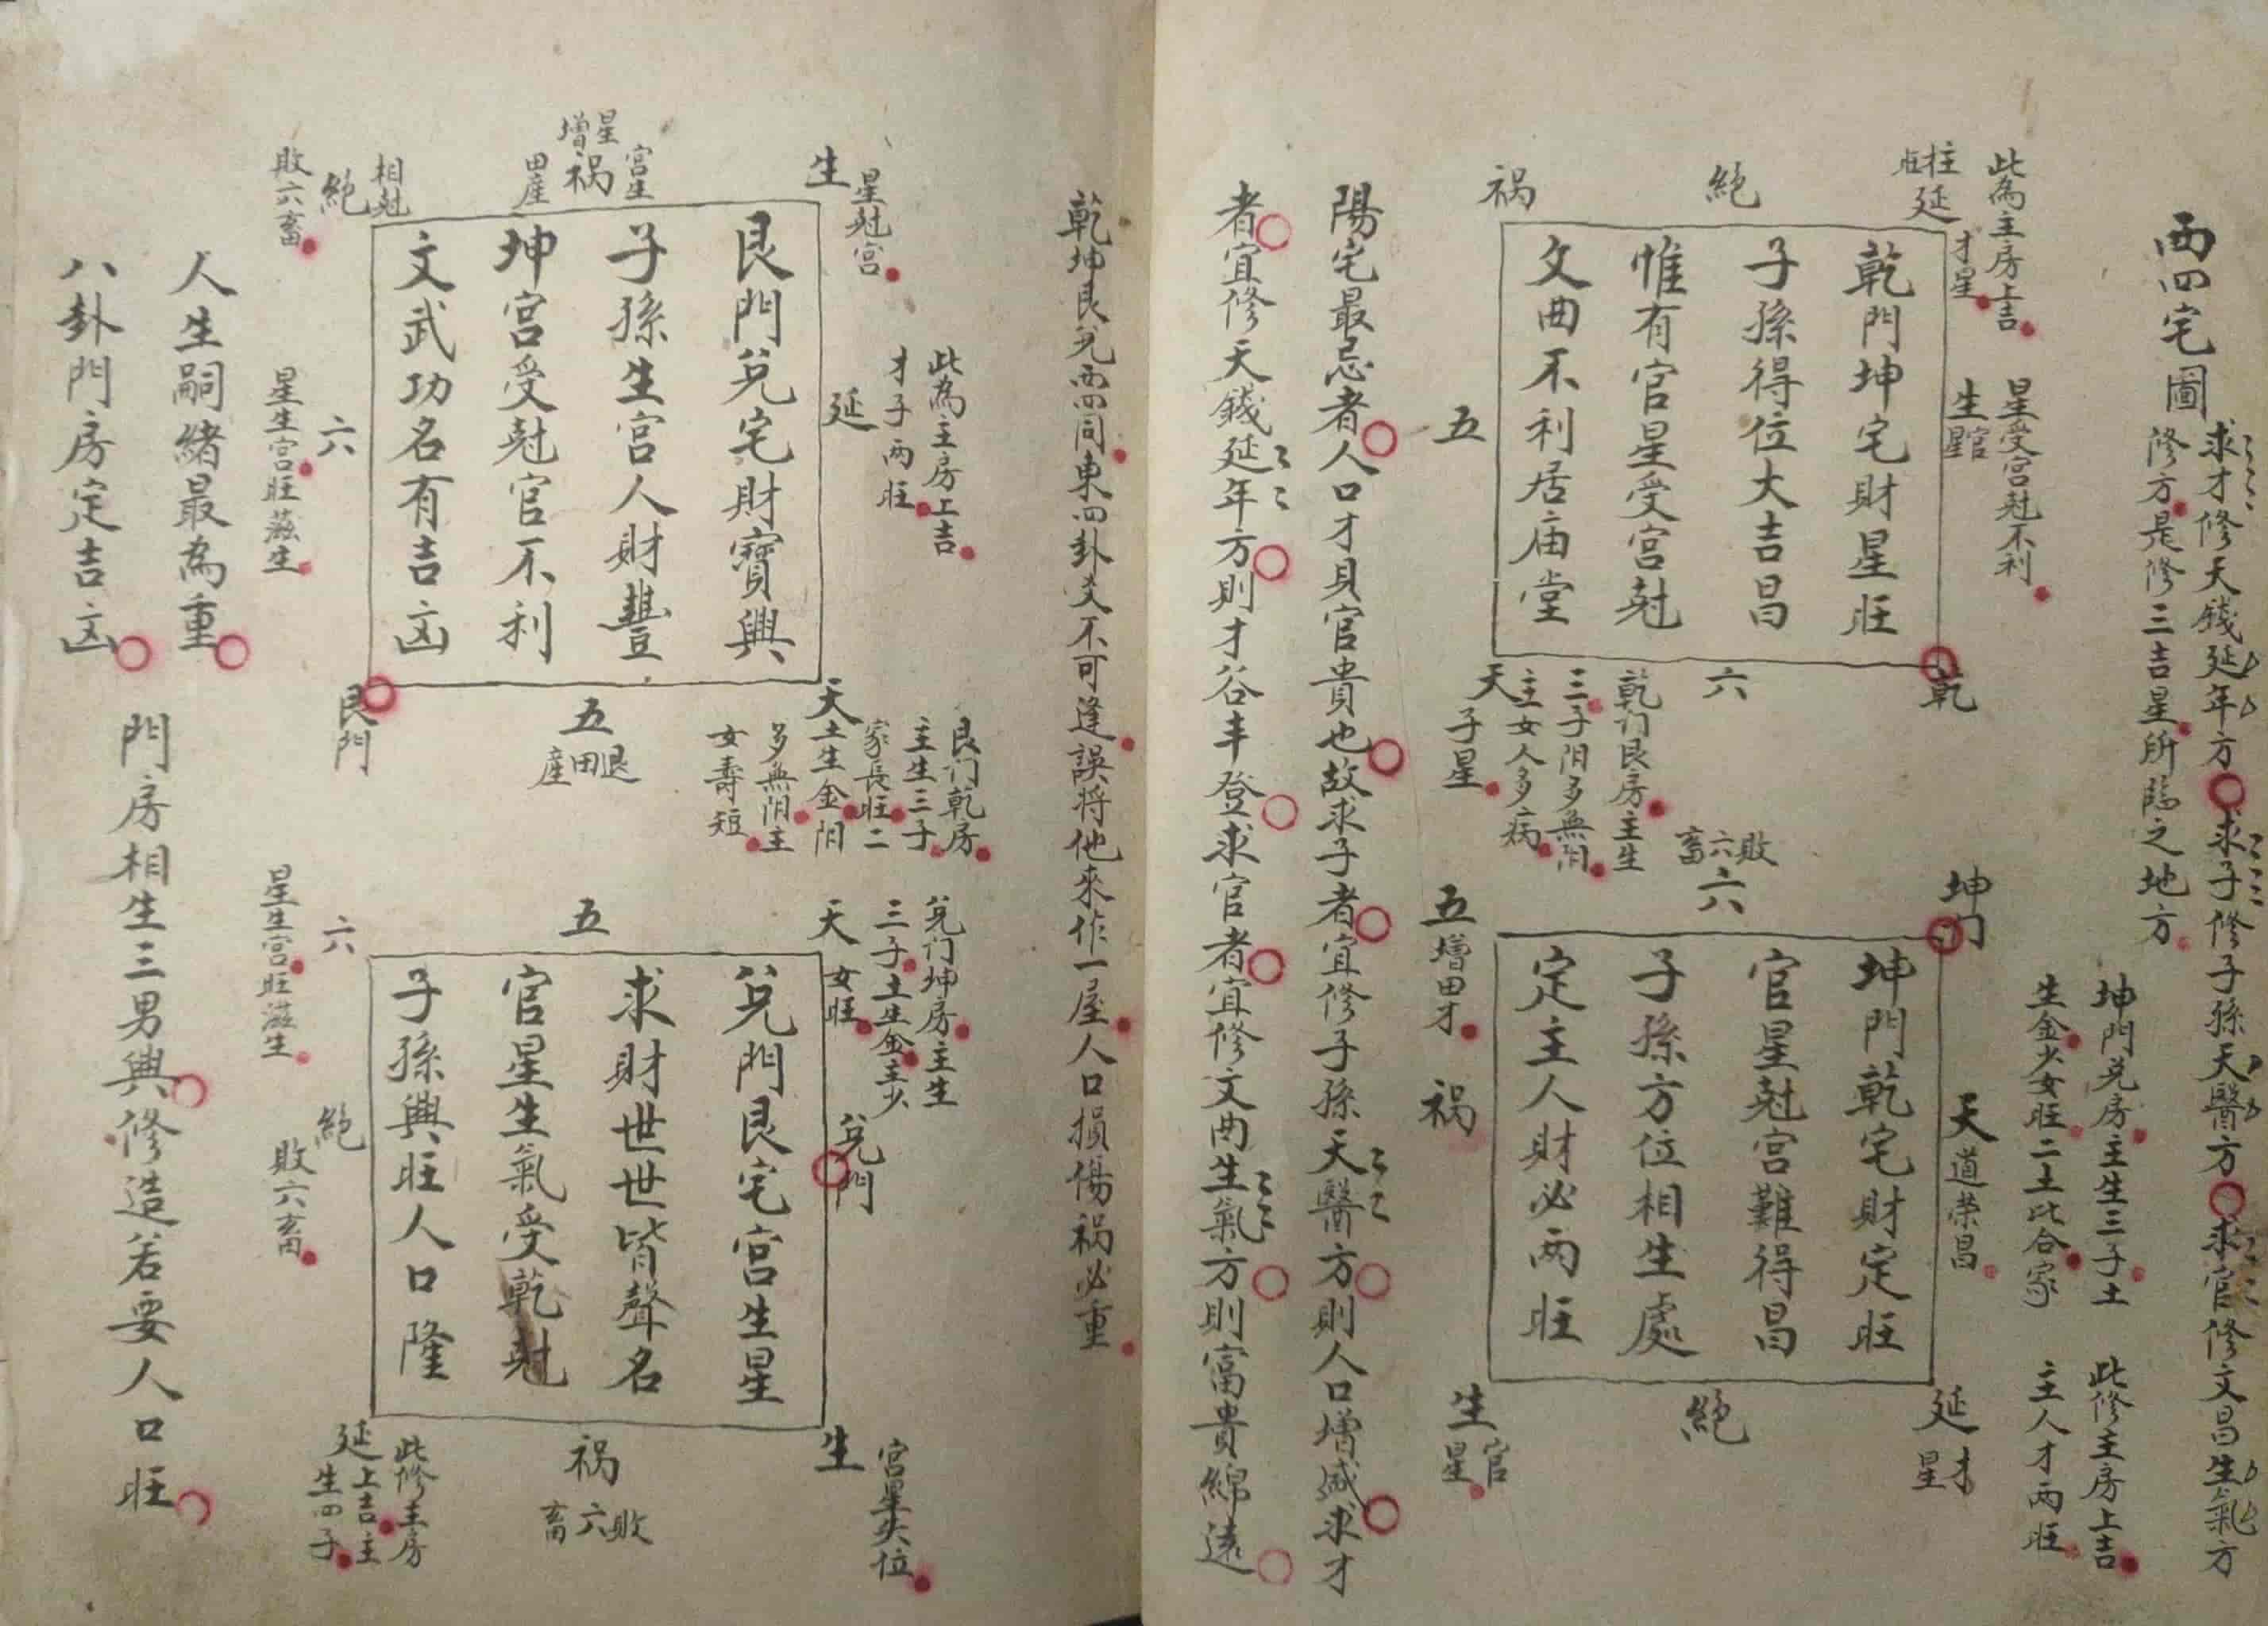 西四宅圖
求才修天錢延年方求子修子孫天醫方求官修文昌生氣方
修方是修三吉星所臨之地方
此為主房上吉
柱
旺
延
才星
絕
祸
星受宮尅不利
生
官星
五
乾門坤宅財星旺
子孫得位大吉昌
惟有官星受宮尅
文曲不利居庙堂
乾
六
乾门艮房主生
三子阳多無阴
主女人多病
天
子星
坤门
敗六畜
六
五
增田才
祸
坤門兑房主生三子土
生金少女旺二土比合家
天
道荣昌
坤門乾宅財定旺
官星尅宮難得昌
子孫方位相生處
定主人財必兩旺
此修主房上吉
主人才兩旺
延
才星
絕
生
官星
陽宅最忌者人口才貝官貴也故求子者宜修子孫天醫方則人口增盛求才
者宜修天錢延年方則才谷丰登求官者宜修文曲生氣方則富貴綿遠
乾坤艮兑西四同東四卦爻不可逢誤將他來作一屋人口損傷祸必重
生
星尅宮
星增
祸
宮生
田産
相尅
絕
敗六畜
此為主房上吉
才子兩旺
延
艮門兑宅財寶興
子孫生宮人財豐
坤宮受尅官不利
文武功名有吉凶
六
星生宮旺滋生
艮門
五
退田產
天
艮门乾房
主生三子
家長旺二
土生金阳
多無阴主
女壽短
兑门坤房主生
三子土生金主少
女旺
天
五
六
星生宮旺滋生
兑門
兑門艮宅宮生星
求財世世皆聲名
官星生氣受乾尅
子孫興旺人口隆
絕
敗六畜
生
宮星失位
祸
敗六畜
此修主房
上吉主
生四子
延
人生嗣緒最為重
八卦門房定吉凶
門房相生三男興修造若要人口旺